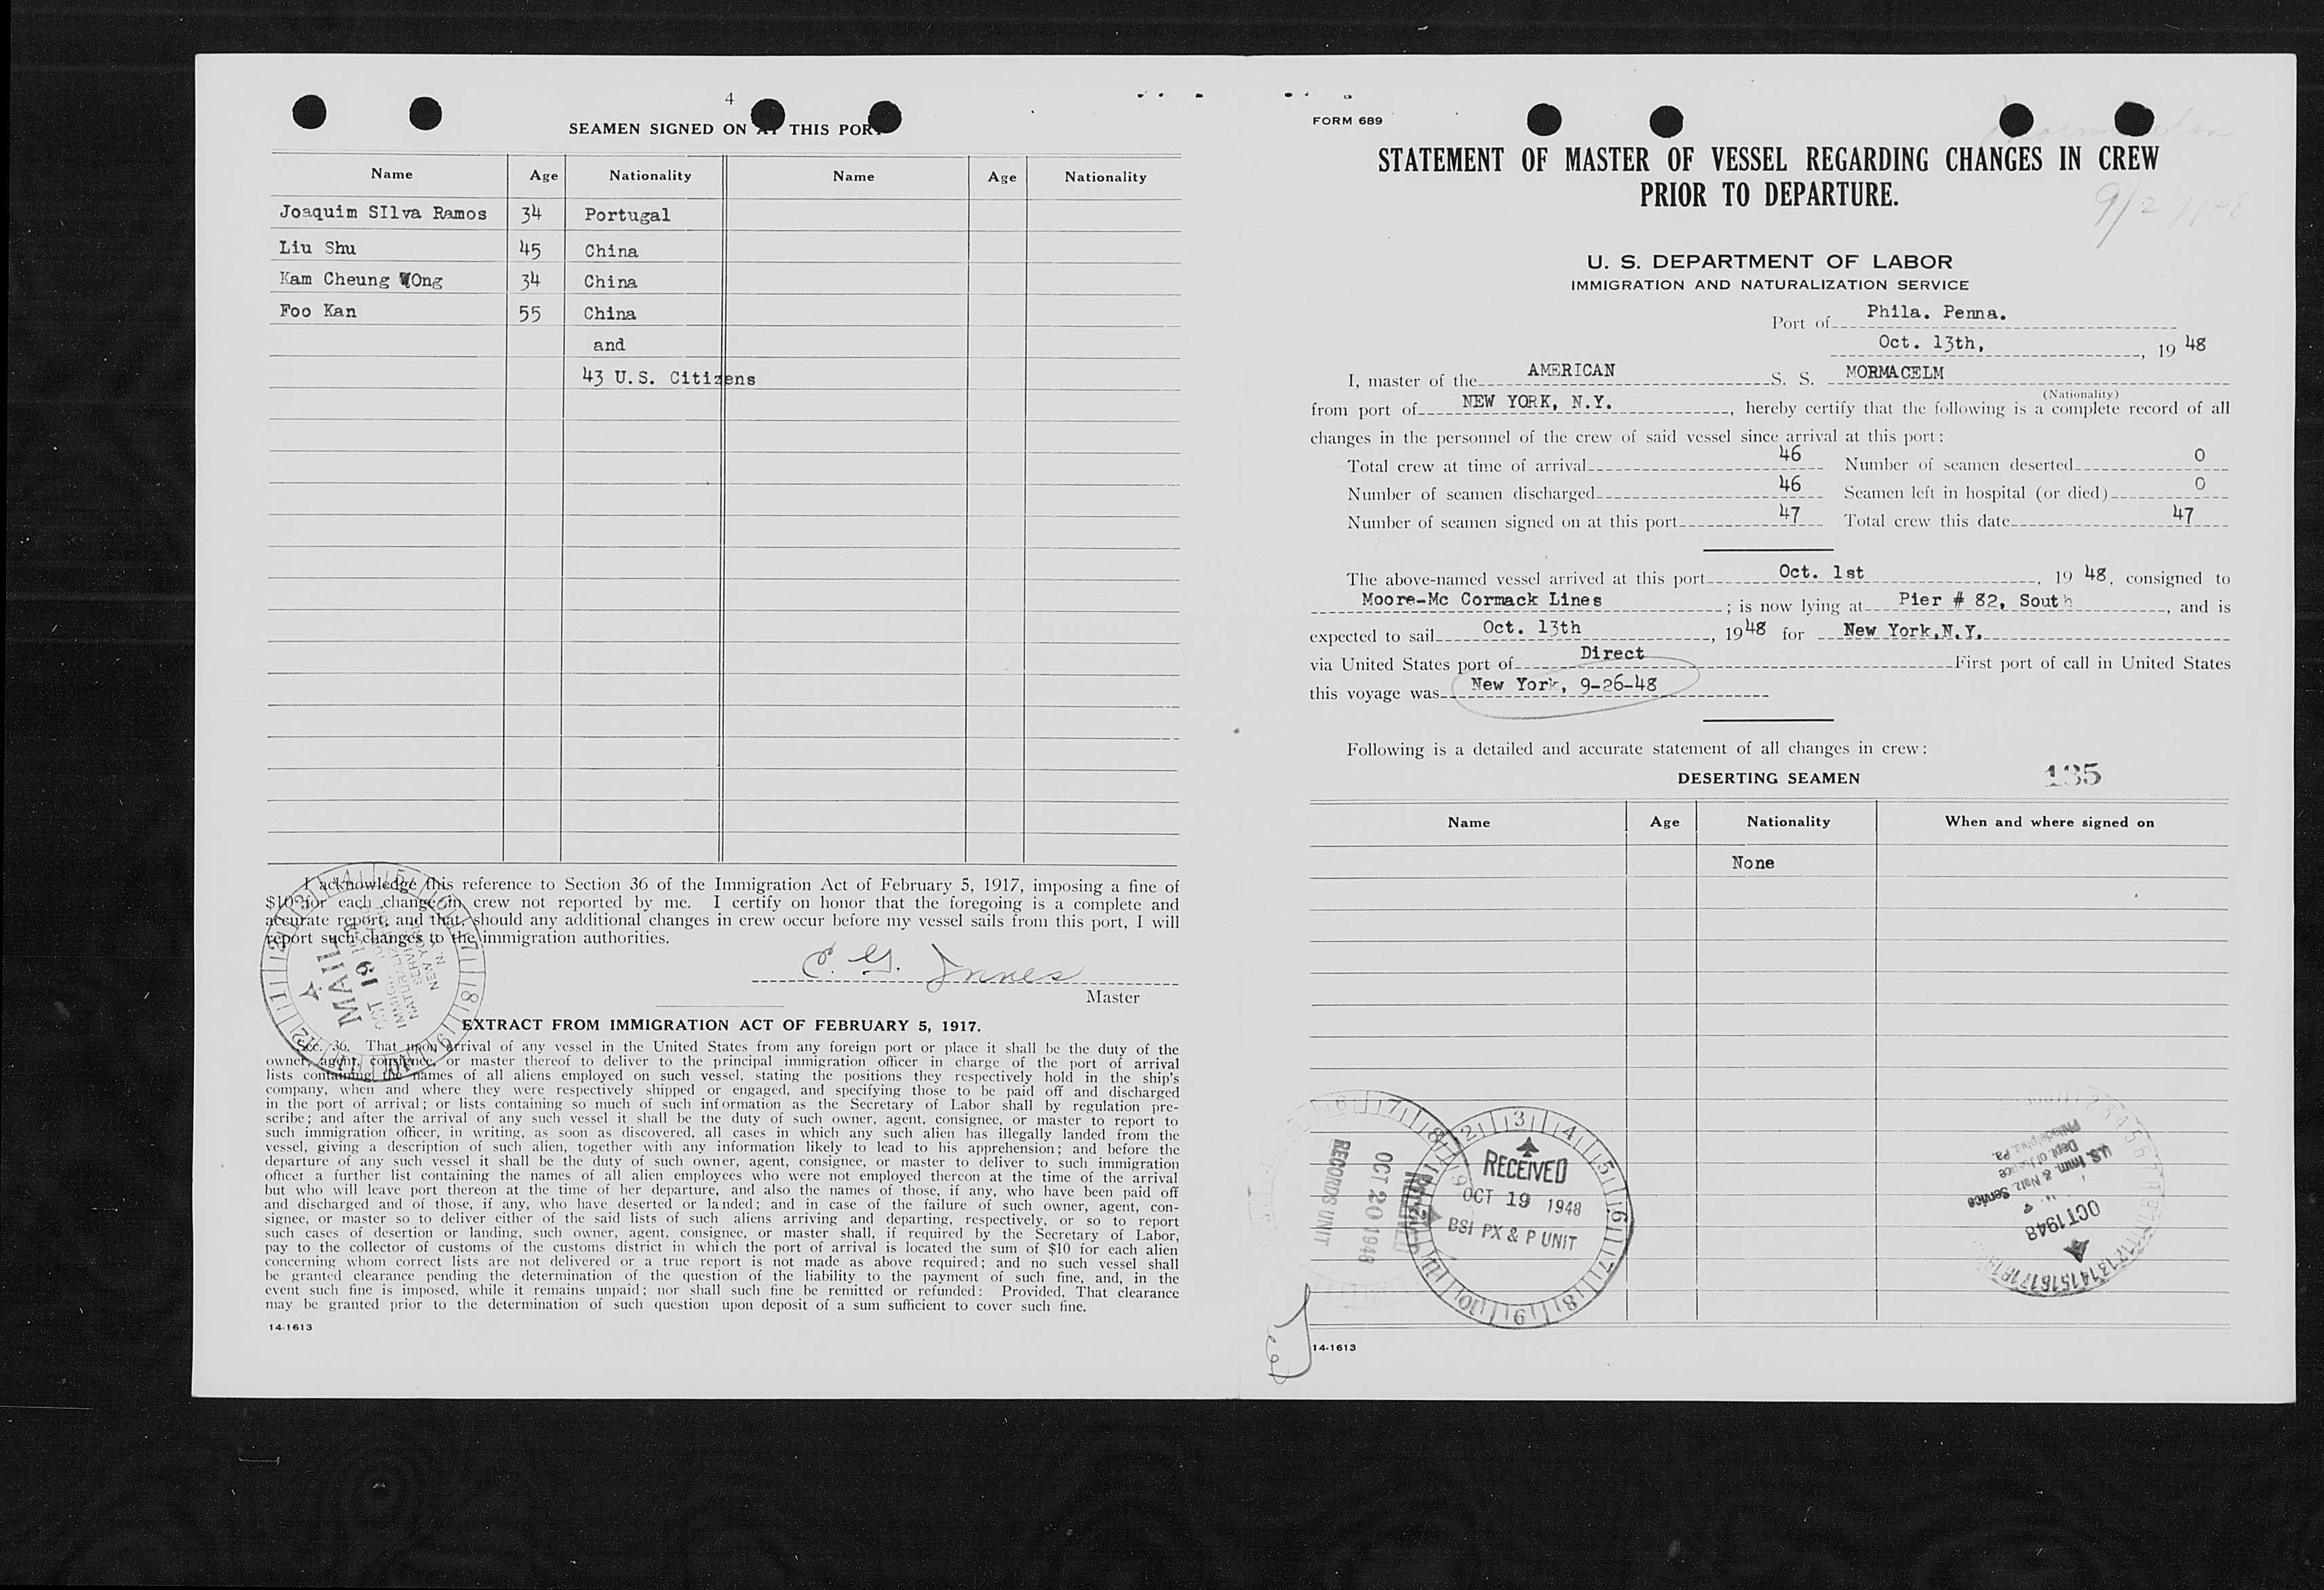 4
SEAMEN SIGNED ON AT THIS PORT
Name Age Nationality Name Age Nationality
Joaquim SIlva Ramos 34 Portugal
Liu Shu 45 China
Kam Cheung WOng 34 China
Foo Kan 55 China
and
43 U.S. Citizens
I acknowledge this reference to Section 36 of the Immigration Act of February 5, 1917, imposing a fine of
$10 for each change in crew not reported by me. I certify on honor that the foregoing is a complete and
accurate report, and that should any additional changes in crew occur before my vessel sails from this port, I will
report such changes to the immigration authorities.
C. G. Innes
Master
MAIL
OCT 19
EXTRACT FROM IMMIGRATION ACT OF FEBRUARY 5, 1917.
Sec. 36. That upon arrival of any vessel in the United States from any foreign port or place it shall be the duty of the
owner, agent, consignee, or master thereof to deliver to the principal immigration officer in charge of the port of arrival
lists containing the names of all aliens employed on such vessel, stating the positions they respectively hold in the ship's
company, when and where they were respectively shipped or engaged, and specifying those to be paid off and discharged
in the port of arrival; or lists containing so much of such information as the Secretary of Labor shall by regulation pre-
scribe; and after the arrival of any such vessel it shall be the duty of such owner, agent, consignee, or master to report to
such immigration officer, in writing, as soon as discovered, all cases in which any such alien has illegally landed from the
vessel, giving a description of such alien, together with any information likely to lead to his apprehension; and before the
departure of any such vessel it shall be the duty of such owner, agent, consignee, or master to deliver to such immigration
officer a further list containing the names of all alien employees who were not employed thereon at the time of the arrival
but who will leave port thereon at the time of her departure, and also the names of those, if any, who have been paid off
and discharged and of those, if any, who have deserted or landed; and in case of the failure of such owner, agent, con-
signee, or master so to deliver either of the said lists of such aliens arriving and departing, respectively, or so to report
such cases of desertion or landing, such owner, agent, consignee, or master shall, if required by the Secretary of Labor,
pay to the collector of customs of the customs district in which the port of arrival is located the sum of $10 for each alien
concerning whom correct lists are not delivered or a true report is not made as above required; and no such vessel shall
be granted clearance pending the determination of the question of the liability to the payment of such fine, and, in the
event such fine is imposed, while it remains unpaid; nor shall such fine be remitted or refunded: Provided, That clearance
may be granted prior to the determination of such question upon deposit of a sum sufficient to cover such fine.
14-1613
FORM 689
STATEMENT OF MASTER OF VESSEL REGARDING CHANGES IN CREW
PRIOR TO DEPARTURE.
9/27/48
U. S. DEPARTMENT OF LABOR
IMMIGRATION AND NATURALIZATION SERVICE
Port of Phila. Penna.
Oct. 13th, , 19 48
I, master of the AMERICAN S. S. MORMACELM
(Nationality)
from port of NEW YORK, N.Y. , hereby certify that the following is a complete record of all
changes in the personnel of the crew of said vessel since arrival at this port:
Total crew at time of arrival 46 Number of seamen deserted 0
Number of seamen discharged 46 Seamen left in hospital (or died) 0
Number of seamen signed on at this port 47 Total crew this date 47
The above-named vessel arrived at this port Oct. 1st , 19 48, consigned to
Moore-Mc Cormack Lines ; is now lying at Pier # 82, South , and is
expected to sail Oct. 13th , 1948 for New York,N.Y.
via United States port of Direct First port of call in United States
this voyage was New York, 9-26-48
Following is a detailed and accurate statement of all changes in crew:
DESERTING SEAMEN 135
Name Age Nationality When and where signed on
None
RECORDS UNIT
OCT 20 1948
RECEIVED
OCT 19 1948
BSI PX & P UNIT
U.S. Imm. & Natz. Service
Dept of Justice
Philadelphia, Pa.
OCT 1948
14-1613